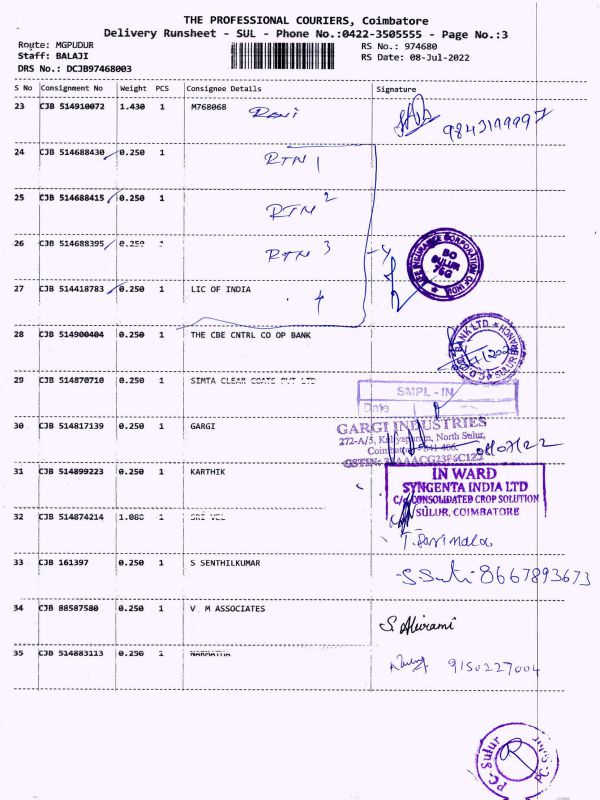 THE PROFESSIONAL COURIERS, Coimbatore
Delivery Runsheet - SUL - Phone No.:0422-3505555 - Page No.:3
Route: MGPUDUR
RS No.: 974680
Staff: BALAJI
RS Date: 08-Jul-2022
DRS No.: DCJB97468003
S No Consignment No Weight PCS Consignee Details Signature
23 CJB 514910072 1.430 1 M768068 Rani
9843199997
24 CJB 514688430 0.250 1 RTN 1
25 CJB 514688415 0.250 1 RTN 2
26 CJB 514688395 0.250 1 RTN 3
LIFE INSURANCE CORPORATION OF INDIA
BO
SULUR
76G
27 CJB 514418783 0.250 1 LIC OF INDIA 4
28 CJB 514900404 0.250 1 THE CBE CNTRL CO OP BANK
BANK LTD. SULUR BRANCH
29 CJB 514870710 0.250 1 SIMTA CLEAR COATS PVT LTD
SMPL - IN
Date
30 CJB 514817139 0.250 1 GARGI
GARGI INDUSTRIES
272-A/5, North Sulur,
08/07/22
31 CJB 514899223 0.250 1 KARTHIK
IN WARD
SYNGENTA INDIA LTD
C/o CONSOLIDATED CROP SOLUTION
SULUR, COIMBATORE
32 CJB 514874214 1.080 1 SRI VEL
T. Parimala
33 CJB 161397 0.250 1 S SENTHILKUMAR
8667893673
34 CJB 88587580 0.250 1 V M ASSOCIATES
S. Abirami
35 CJB 514883113 0.250 1 NARMATHA
9150227004
PC-Sulur